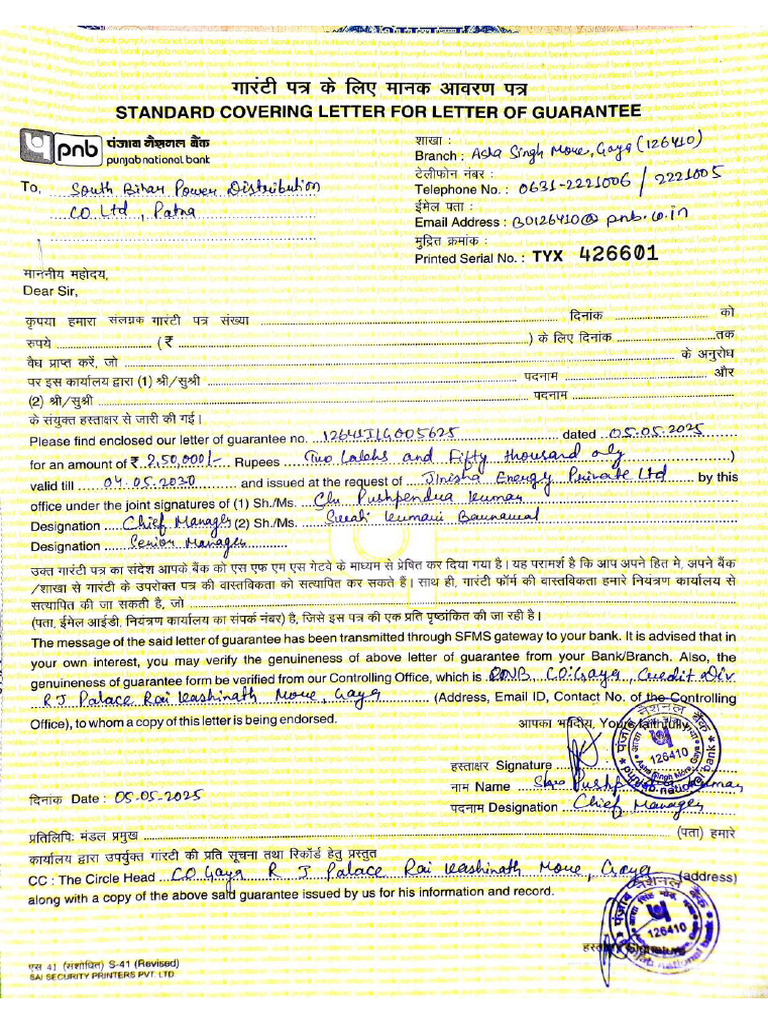 गारंटी पत्र के लिए मानक आवरण पत्र
STANDARD COVERING LETTER FOR LETTER OF GUARANTEE
pnb पंजाब नैशनल बैंक
punjab national bank
शाखा :
Branch : Asha Singh More, Gaya (126410)
टेलीफोन नंबर :
Telephone No. : 0631-2221006 / 2221005
ईमेल पता :
Email Address : BO126410@pnb.co.in
मुद्रित क्रमांक :
Printed Serial No. : TYX 426601
To, South Bihar Power Distribution
CO Ltd, Patna
माननीय महोदय,
Dear Sir,
कृपया हमारा संलग्नक गारंटी पत्र संख्या दिनांक को
रुपये (₹ ) के लिए दिनांक तक
वैध प्राप्त करें, जो के अनुरोध
पर इस कार्यालय द्वारा (1) श्री/सुश्री पदनाम और
(2) श्री/सुश्री पदनाम
के संयुक्त हस्ताक्षर से जारी की गई।
Please find enclosed our letter of guarantee no. 12641ILG005625 dated 05.05.2025
for an amount of ₹ 2,50,000/- Rupees Two Lakhs and Fifty thousand only )
valid till 04.05.2030 and issued at the request of Jinisha Energy Private Ltd by this
office under the joint signatures of (1) Sh./Ms. Shri Pushpendra Kumar
Designation Chief Manager (2) Sh./Ms. Swati Kumari Barnawal
Designation Senior Manager
उक्त गारंटी पत्र का संदेश आपके बैंक को एस एफ एम एस गेटवे के माध्यम से प्रेषित कर दिया गया है। यह परामर्श है कि आप अपने हित मे, अपने बैंक
/शाखा से गारंटी के उपरोक्त पत्र की वास्तविकता को सत्यापित कर सकते हैं। साथ ही, गारंटी फॉर्म की वास्तविकता हमारे नियंत्रण कार्यालय से
सत्यापित की जा सकती है, जो
(पता, ईमेल आईडी, नियंत्रण कार्यालय का संपर्क नंबर) है, जिसे इस पत्र की एक प्रति पृष्ठांकित की जा रही है।
The message of the said letter of guarantee has been transmitted through SFMS gateway to your bank. It is advised that in
your own interest, you may verify the genuineness of above letter of guarantee from your Bank/Branch. Also, the
genuineness of guarantee form be verified from our Controlling Office, which is PNB, CO:Gaya, Credit Div.
R J Palace Rai Kashinath More, Gaya (Address, Email ID, Contact No. of the Controlling
Office), to whom a copy of this letter is being endorsed.
आपका भवदीय, Yours faithfully,
हस्ताक्षर Signature
नाम Name Shri Pushpendra Kumar
दिनांक Date : 05-05-2025
पदनाम Designation Chief Manager
पंजाब नैशनल बैंक
126410
Asha Singh More, Gaya
punjab national bank
प्रतिलिपिः मंडल प्रमुख (पता) हमारे
कार्यालय द्वारा उपर्युक्त गारंटी की प्रति सूचना तथा रिकॉर्ड हेतु प्रस्तुत
CC : The Circle Head CO Gaya R J Palace Rai Kashinath More, Gaya (address)
along with a copy of the above said guarantee issued by us for his information and record.
हस्ताक्षर Signature
पंजाब नैशनल बैंक
126410
punjab national bank
एस 41 (संशोधित) S-41 (Revised)
SAI SECURITY PRINTERS PVT. LTD